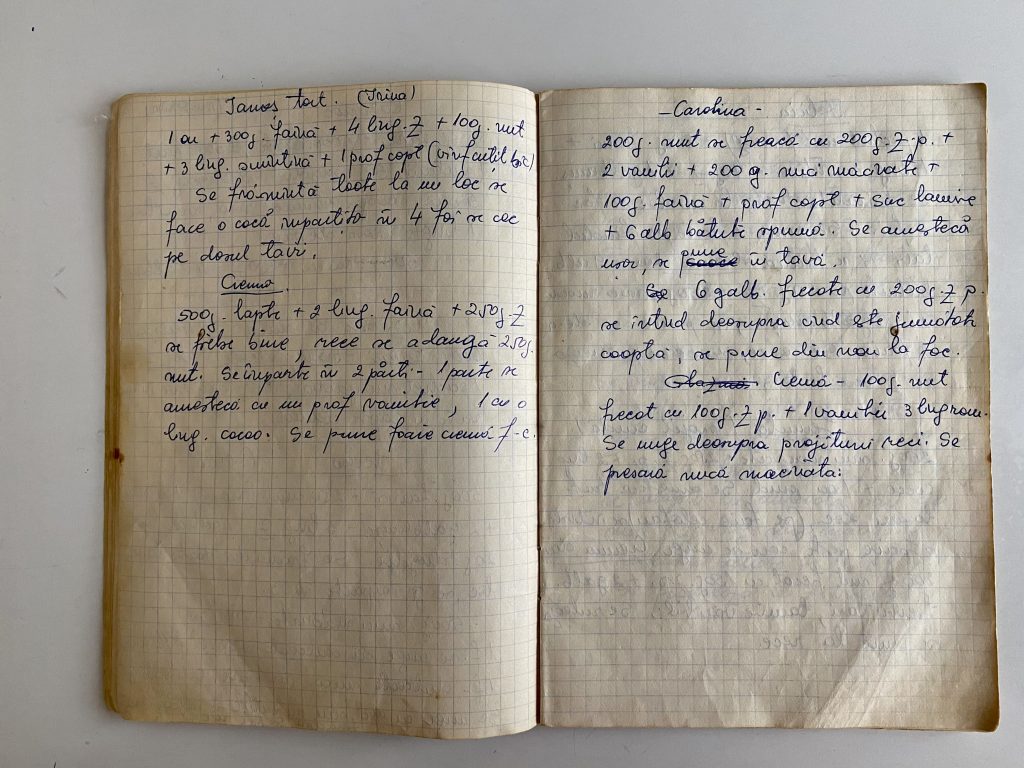 Ianoș tort. (Irina)
1 ou + 300g. făină + 4 ling. Z + 100g. unt
+ 3 ling. smîntînă + 1 praf copt (vîrf cuțit bic)
Se frămîntă toate la un loc se
face o cocă împărțită în 4 foi se coc
pe dosul tăvii.
Cremă.
500g. lapte + 2 ling. făină + 250g. Z
se fierbe bine, rece se adaugă 250g.
unt. Se împarte în 2 părți - 1 parte se
amestecă cu un praf vanilie, 1 cu o
ling. cacao. Se pune foaie cremă f-c.
- Carolina -
200g. unt se freacă cu 200g. Z. p. +
2 vanilii + 200 g. nuci măcinate +
100g. făină + praf copt + suc lamîie
+ 6 alb bătute spumă. Se amestecă
ușor, se pune în tavă.
6 galb. frecate cu 200g. Z p.
se întind deasupra cînd este jumătate
coaptă, se pune din nou la foc.
Glazură Cremă - 100g. unt
frecat cu 100g. Z p. + 1 vanilii 3 ling rom.
Se unge deasupra prăjiturii reci. Se
presară nucă măcinată.